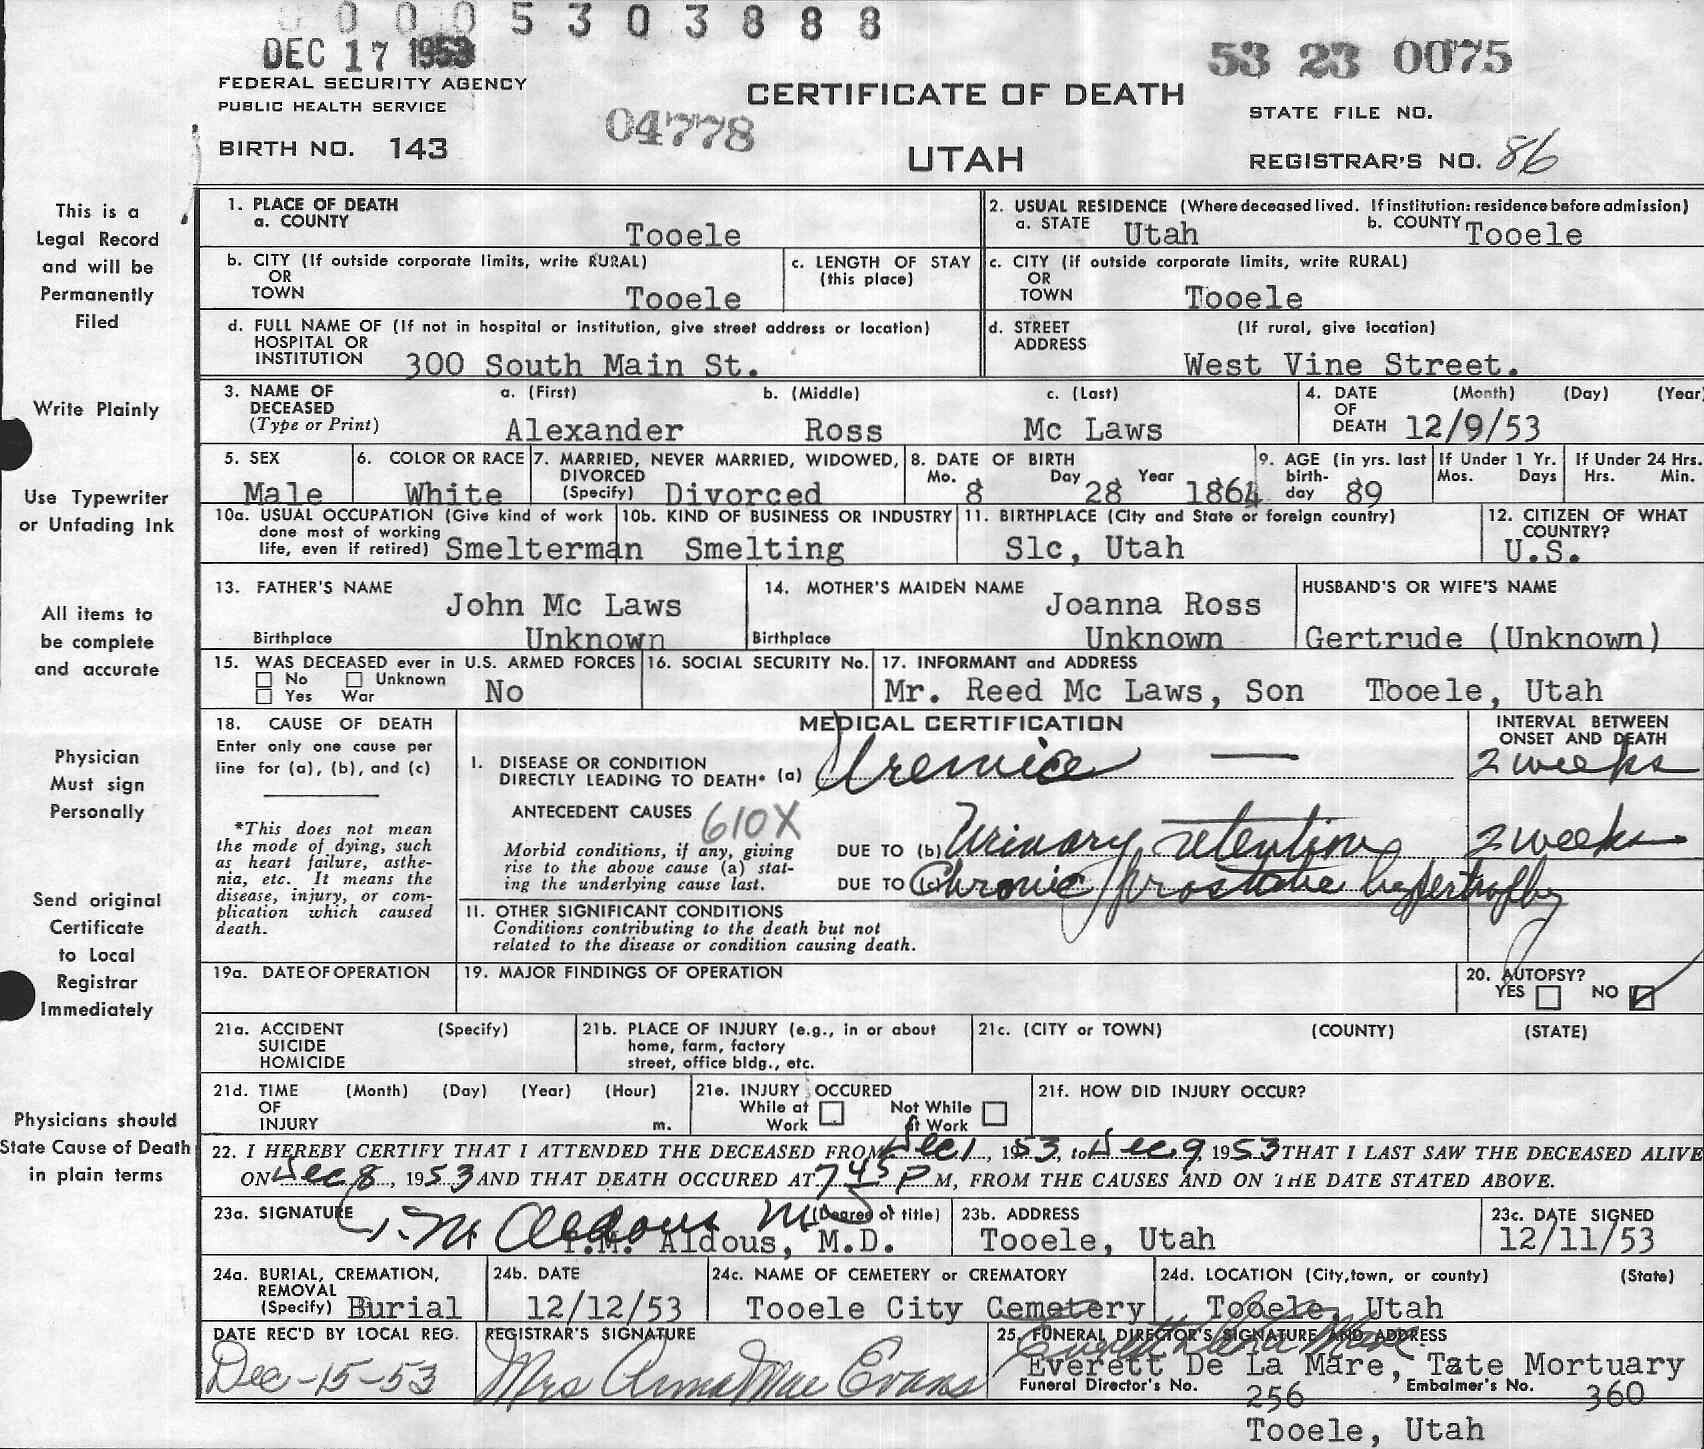 0 0 0 0 5 3 0 3 8 8 8
DEC 17 1953
53 23 0075
FEDERAL SECURITY AGENCY
PUBLIC HEALTH SERVICE
CERTIFICATE OF DEATH
STATE FILE NO.
04778
BIRTH NO. 143
UTAH
REGISTRAR'S NO. 86
This is a
Legal Record
and will be
Permanently
Filed
Write Plainly
Use Typewriter
or Unfading Ink
All items to
be complete
and accurate
Physician
Must sign
Personally
Send original
Certificate
to Local
Registrar
Immediately
Physicians should
State Cause of Death
in plain terms
1. PLACE OF DEATH
a. COUNTY
Tooele
2. USUAL RESIDENCE (Where deceased lived. If institution: residence before admission)
a. STATE Utah b. COUNTY Tooele
b. CITY (If outside corporate limits, write RURAL)
OR
TOWN Tooele
c. LENGTH OF STAY
(this place)
c. CITY (if outside corporate limits, write RURAL)
OR
TOWN Tooele
d. FULL NAME OF (If not in hospital or institution, give street address or location)
HOSPITAL OR
INSTITUTION 300 South Main St.
d. STREET (If rural, give location)
ADDRESS
West Vine Street.
3. NAME OF
DECEASED
(Type or Print)
a. (First) b. (Middle) c. (Last)
Alexander Ross Mc Laws
4. DATE (Month) (Day) (Year)
OF
DEATH 12/9/53
5. SEX
Male
6. COLOR OR RACE
White
7. MARRIED, NEVER MARRIED, WIDOWED,
DIVORCED
(Specify) Divorced
8. DATE OF BIRTH
Mo. 8 Day 28 Year 1864
9. AGE (in yrs. last
birth-
day 89
If Under 1 Yr.
Mos. Days
If Under 24 Hrs.
Hrs. Min.
10a. USUAL OCCUPATION (Give kind of work
done most of working
life, even if retired) Smelterman
10b. KIND OF BUSINESS OR INDUSTRY
Smelting
11. BIRTHPLACE (City and State or foreign country)
Slc, Utah
12. CITIZEN OF WHAT
COUNTRY?
U.S.
13. FATHER'S NAME
John Mc Laws
Birthplace Unknown
14. MOTHER'S MAIDEN NAME
Joanna Ross
Birthplace Unknown
HUSBAND'S OR WIFE'S NAME
Gertrude (Unknown)
15. WAS DECEASED ever in U.S. ARMED FORCES
No Unknown
Yes War No
16. SOCIAL SECURITY No.
17. INFORMANT and ADDRESS
Mr. Reed Mc Laws, Son Tooele, Utah
18. CAUSE OF DEATH
Enter only one cause per
line for (a), (b), and (c)
*This does not mean
the mode of dying, such
as heart failure, asthe-
nia, etc. It means the
disease, injury, or com-
plication which caused
death.
MEDICAL CERTIFICATION
INTERVAL BETWEEN
ONSET AND DEATH
I. DISEASE OR CONDITION
DIRECTLY LEADING TO DEATH* (a) Uremia 2 weeks
ANTECEDENT CAUSES 610X
Morbid conditions, if any, giving
rise to the above cause (a) stat-
ing the underlying cause last.
DUE TO (b) Urinary retention 2 weeks
DUE TO (c) Chronic prostatic hypertrophy
11. OTHER SIGNIFICANT CONDITIONS
Conditions contributing to the death but not
related to the disease or condition causing death.
19a. DATE OF OPERATION
19. MAJOR FINDINGS OF OPERATION
20. AUTOPSY?
YES NO
21a. ACCIDENT (Specify)
SUICIDE
HOMICIDE
21b. PLACE OF INJURY (e.g., in or about
home, farm, factory
street, office bldg., etc.
21c. (CITY or TOWN) (COUNTY) (STATE)
21d. TIME (Month) (Day) (Year) (Hour)
OF
INJURY m.
21e. INJURY OCCURED
While at Not While
Work At Work
21f. HOW DID INJURY OCCUR?
22. I HEREBY CERTIFY THAT I ATTENDED THE DECEASED FROM Dec 1, 1953, to Dec. 9, 1953 THAT I LAST SAW THE DECEASED ALIVE
ON Dec 8, 1953 AND THAT DEATH OCCURED AT 7 45 P M, FROM THE CAUSES AND ON THE DATE STATED ABOVE.
23a. SIGNATURE (Degree of title)
Aldous MD
T.M. Aldous, M.D.
23b. ADDRESS
Tooele, Utah
23c. DATE SIGNED
12/11/53
24a. BURIAL, CREMATION,
REMOVAL
(Specify) Burial
24b. DATE
12/12/53
24c. NAME OF CEMETERY or CREMATORY
Tooele City Cemetery
24d. LOCATION (City, town, or county) (State)
Tooele, Utah
DATE REC'D BY LOCAL REG.
Dec-15-53
REGISTRAR'S SIGNATURE
Mrs Anna Mae Evans
25. FUNERAL DIRECTOR'S SIGNATURE AND ADDRESS
Everett De La Mare
Everett De La Mare, Tate Mortuary
Funeral Director's No. 256 Embalmer's No. 360
Tooele, Utah